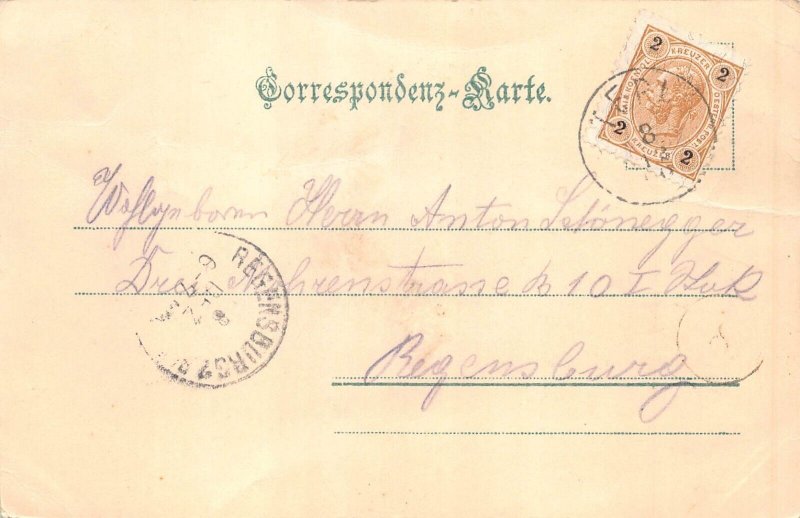 Correspondenz-Karte.
2 KREUZER 2
2 KREUZER 2
Wohlgeboren Herrn Anton Schönegger
Drei Mohrenstrasse B 10 I Stock
Regensburg
REGENSBURG 2